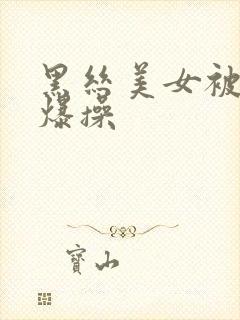 黑丝美女被
爆操
寳山